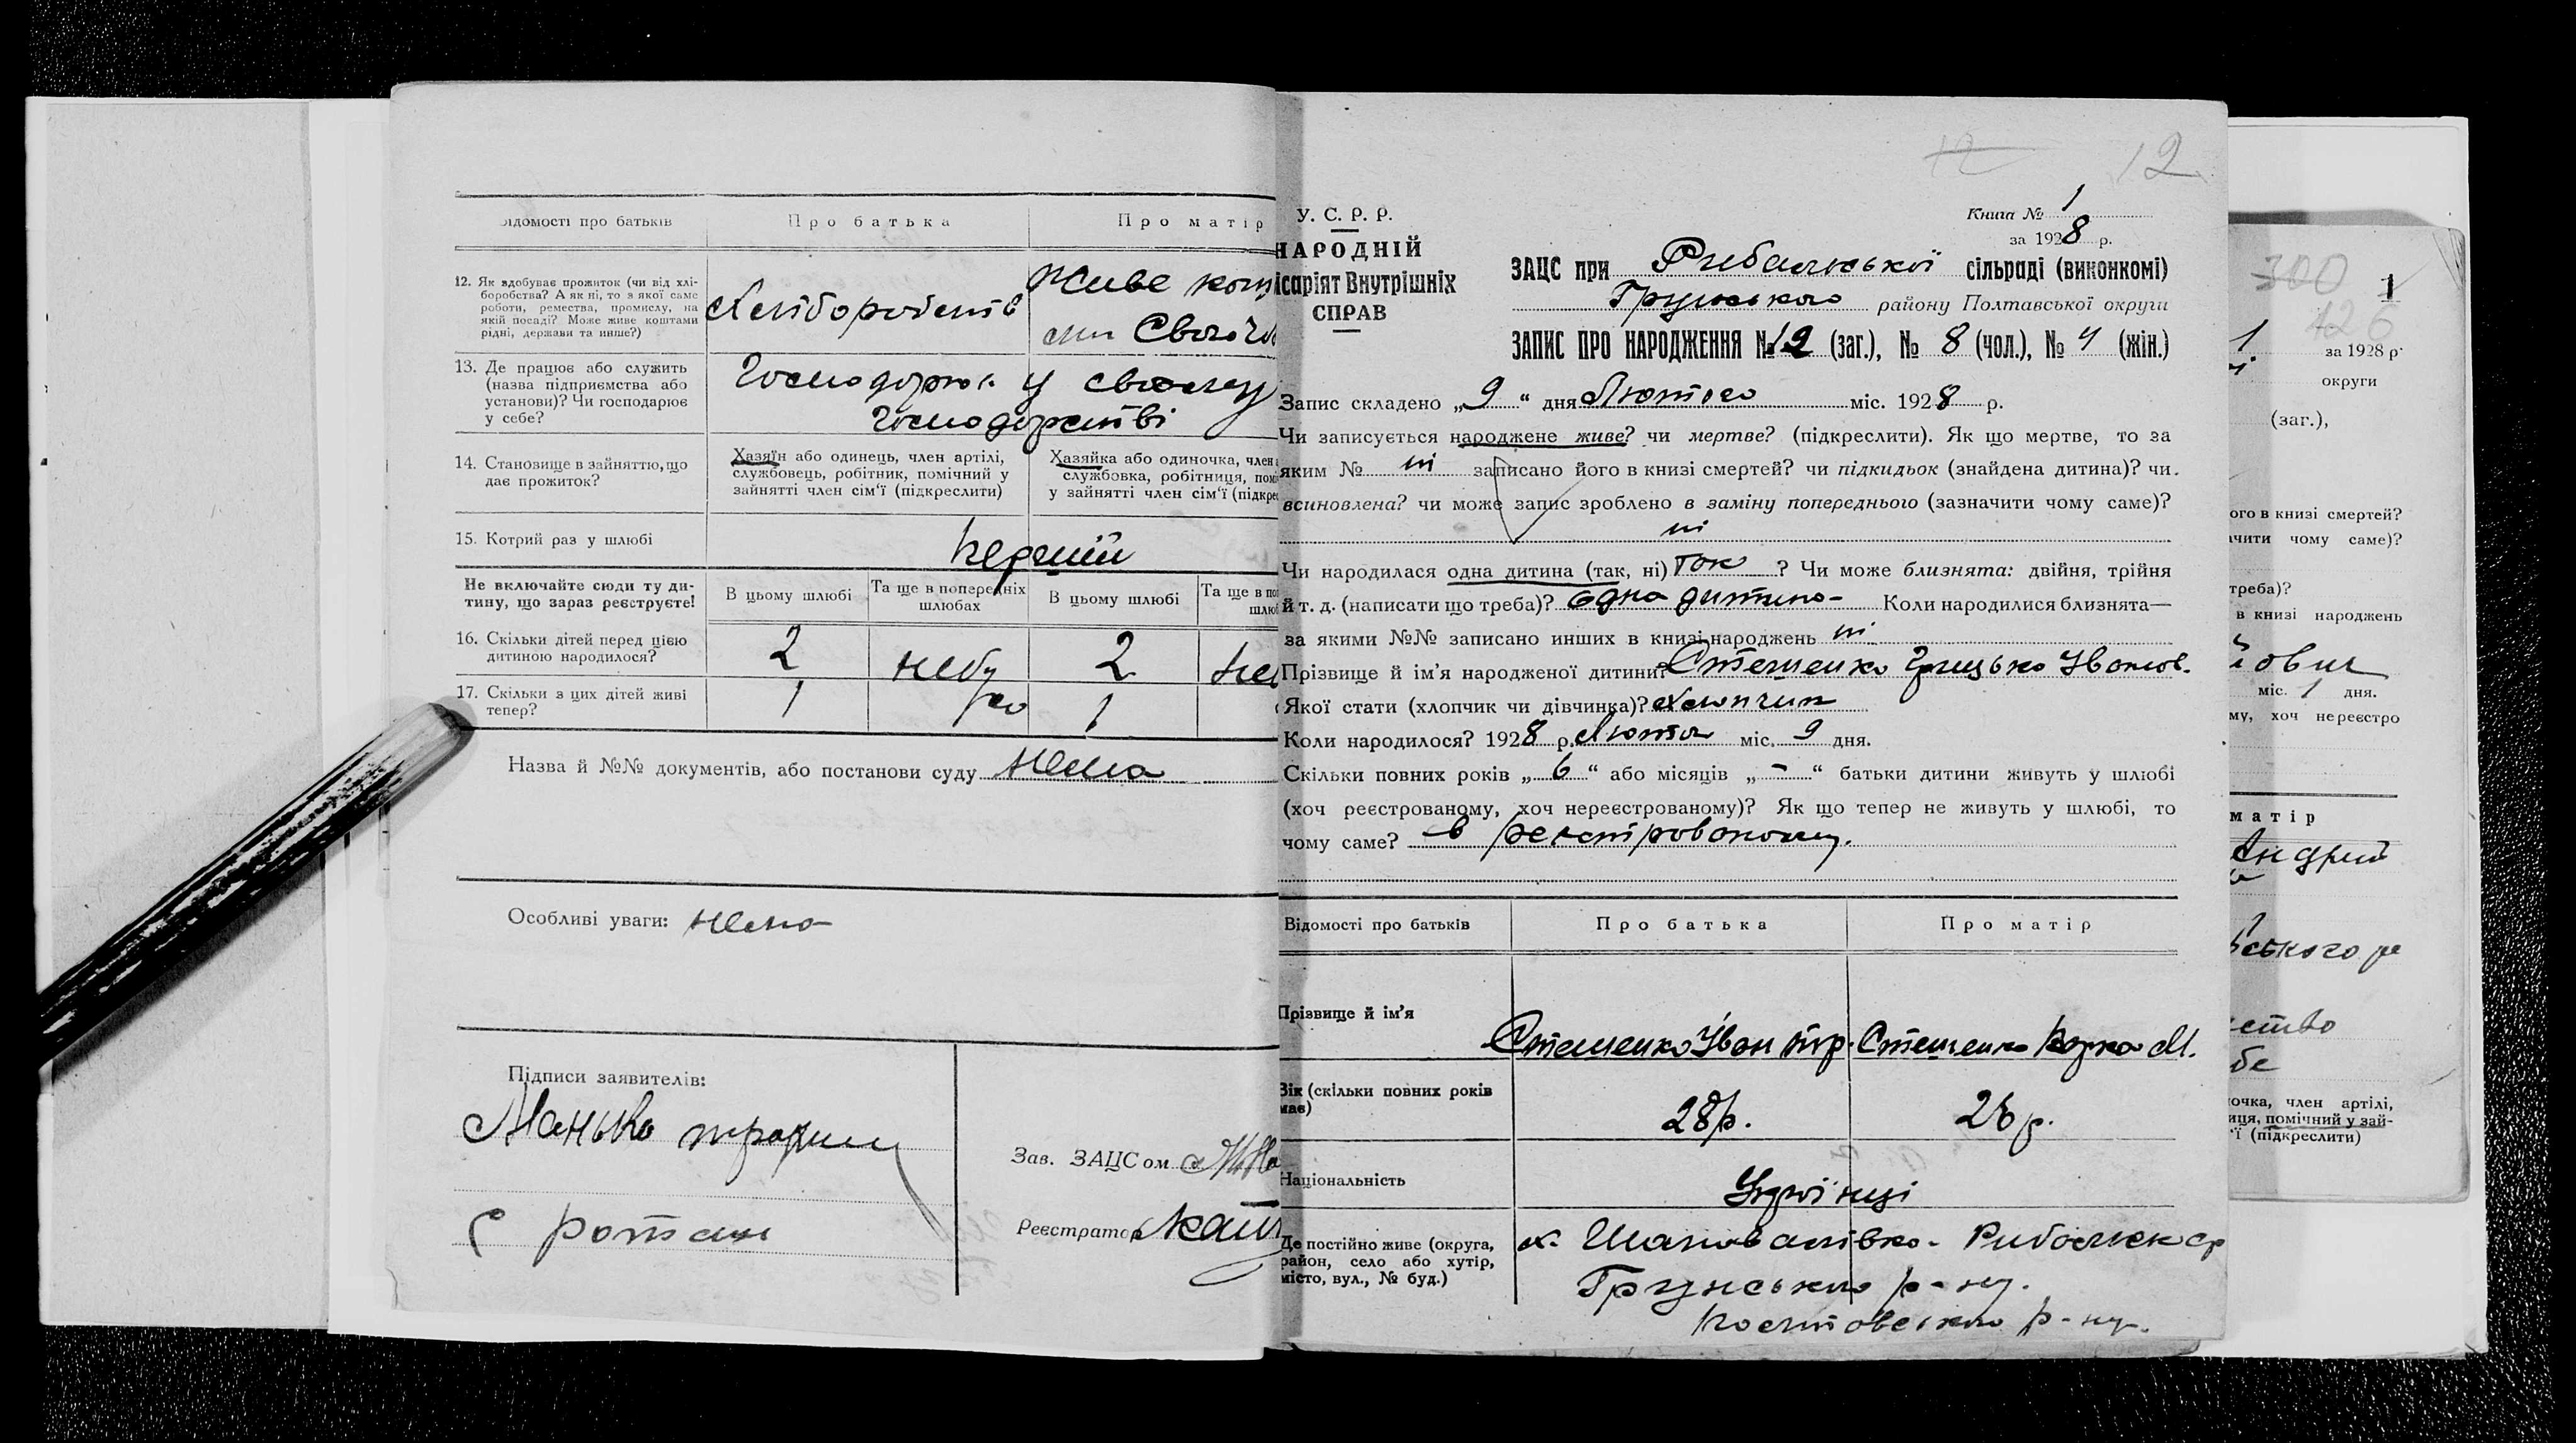 Відомості про батьків
Про батька
Про матір
12. Як здобуває прожиток (чи від хлі-
боробства? А як ні, то з якої саме
роботи, ремества, промислу, на
якій посаді? Може живе коштами
рідні, держави та инше?)
Живе
13. Де працює або служить
(назва підприємства або
установи)? Чи господарює
у себе?
Господорює у своєму
господорстві
14. Становище в зайняттю, що
дає прожиток?
Хазяїн або одинець, член артілі,
службовець, робітник, помічний у
зайнятті член сім'ї (підкреслити)
Хазяйка або одиночка, член
службовка, робітниця, пом
у зайнятті член сім'ї (підкре
15. Котрий раз у шлюбі
Перший
Не включайте сюди ту ди-
тину, що зараз реєструєте!
В цьому шлюбі
Та ще в попередніх
шлюбах
В цьому шлюбі
Та ще в по
шлю
16. Скільки дітей перед цією
дитиною народилося?
2
небу
2
17. Скільки з цих дітей живі
тепер?
1
ло
1
Назва й №№ документів, або постанови суду Нема
Особливі уваги: Нема
Підписи заявителів:
Манько
С ротан
Зав. ЗАЦСом
Реєстратор
12
12
У. С. Р. Р.
НАРОДНІЙ
ісаріят Внутрішніх
СПРАВ
Книга № 1
за 1928 р.
ЗАЦС при Рибальської сільраді (виконкомі)
Грунського району Полтавської округи
ЗАПИС ПРО НАРОДЖЕННЯ №12 (заг.), № 8 (чол.), № 4 (жін.)
Запис складено „9“ дня Лютого міс. 1928 р.
Чи записується народжене живе? чи мертве? (підкреслити). Як що мертве, то за
яким № ні записано його в книзі смертей? чи підкидьок (знайдена дитина)? чи
всиновлена? чи може запис зроблено в заміну попереднього (зазначити чому саме)?
ні
Чи народилася одна дитина (так, ні) Так ? Чи може близнята: двійня, трійня
й т. д. (написати що треба)? Одна дитина- Коли народилися близнята—
за якими №№ записано инших в книзі народжень ні
Прізвище й ім'я народженої дитини? Стешенко Грицько Іванов.
Якої стати (хлопчик чи дівчинка)? Хлопчик
Коли народилося? 1928 р. Лютого міс. 9 дня.
Скільки повних років „6“ або місяців „-“ батьки дитини живуть у шлюбі
(хоч реєстрованому, хоч нереєстрованому)? Як що тепер не живуть у шлюбі, то
чому саме? в реєстрованому.
Відомості про батьків
Про батька
Про матір
Прізвище й ім'я
Стешенко Іван
Стешенко М.
Вік (скільки повних років
має)
28 р.
26 р.
Національність
Українці
Де постійно живе (округа,
район, село або хутір,
місто, вул., № буд.)
х. Шаповалівка
Грунського р-ну.
р-ну.
300
1
126
1
за 1928 р.
округи
(заг.),
ого в книзі смертей?
ачити чому саме)?
треба)?
в книзі народжень
ович
міс. 1 дня.
му, хоч нереєстро
матір
ського
ство
бе
очка, член артілі,
иця, помічний у зай-
'ї (підкреслити)